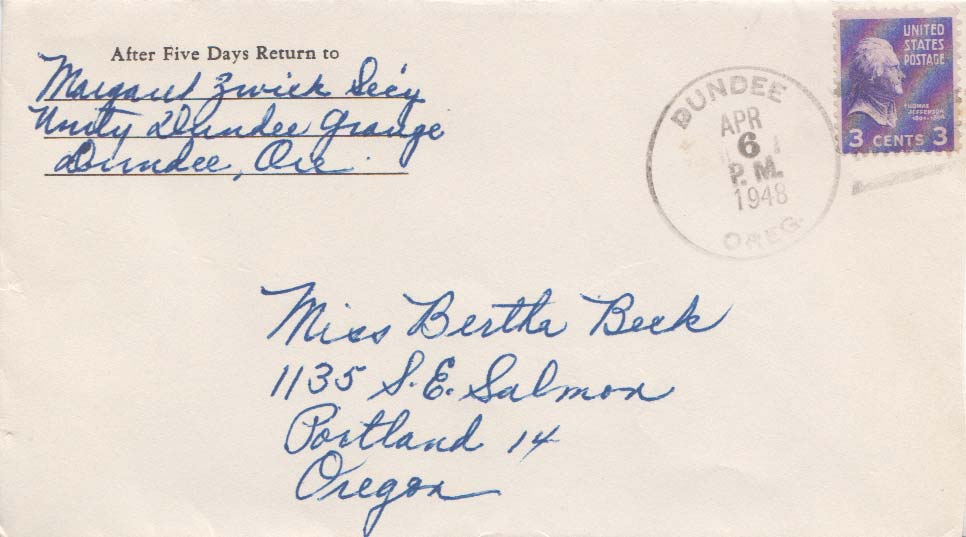 After Five Days Return to
Margaret Zwick Sec'y
Unity Dundee Grange
Dundee, Ore.
DUNDEE
APR
6
P.M.
1948
OREG.
UNITED
STATES
POSTAGE
THOMAS
JEFFERSON
3 CENTS 3
Miss Bertha Beck
1135 S.E. Salmon
Portland 14
Oregon